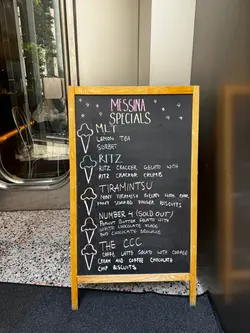 MESSINA
SPECIALS
MLT
LEMON TEA
SORBET
RITZ
RITZ CRACKER GELATO WITH
RITZ CRACKER CRUMB
TIRAMINTSU
MINT TIRAMISU GELATO WITH
MINT SOAKED FINGER BISCUITS
NUMBER 4 (SOLD OUT)
PEANUT BUTTER GELATO WITH
WHITE CHOCOLATE FUDGE
AND CHOCOLATE
THE CCC
COFFEE LATTE GELATO WITH COFFEE
CREAM AND COFFEE CHOCOLATE
CHIP BISCUITS